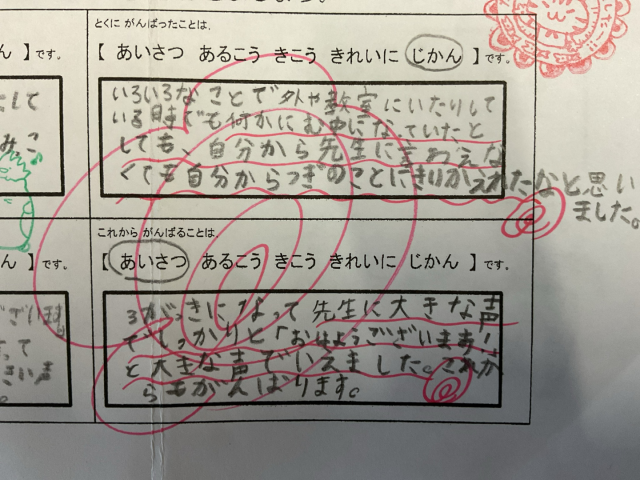 とくに がんばったことは、
ん 】です。
【 あいさつ あるこう きこう きれいに じかん 】です。
いろいろなことで外や教室にいたりして
いる時でも何かにむ中になっていたと
しても、自分から先生に言わえな
くても自分からつぎのことにきりかえれたなと思い
ました。
して
みこ
これから がんばることは、
ん 】です。
【 あいさつ あるこう きこう きれいに じかん 】です。
3がっきになって先生に大きな声
でしっかりと「おはようございます！
と大きな声でいえました。これか
らもがんばります。
ございます
って
きい声
。